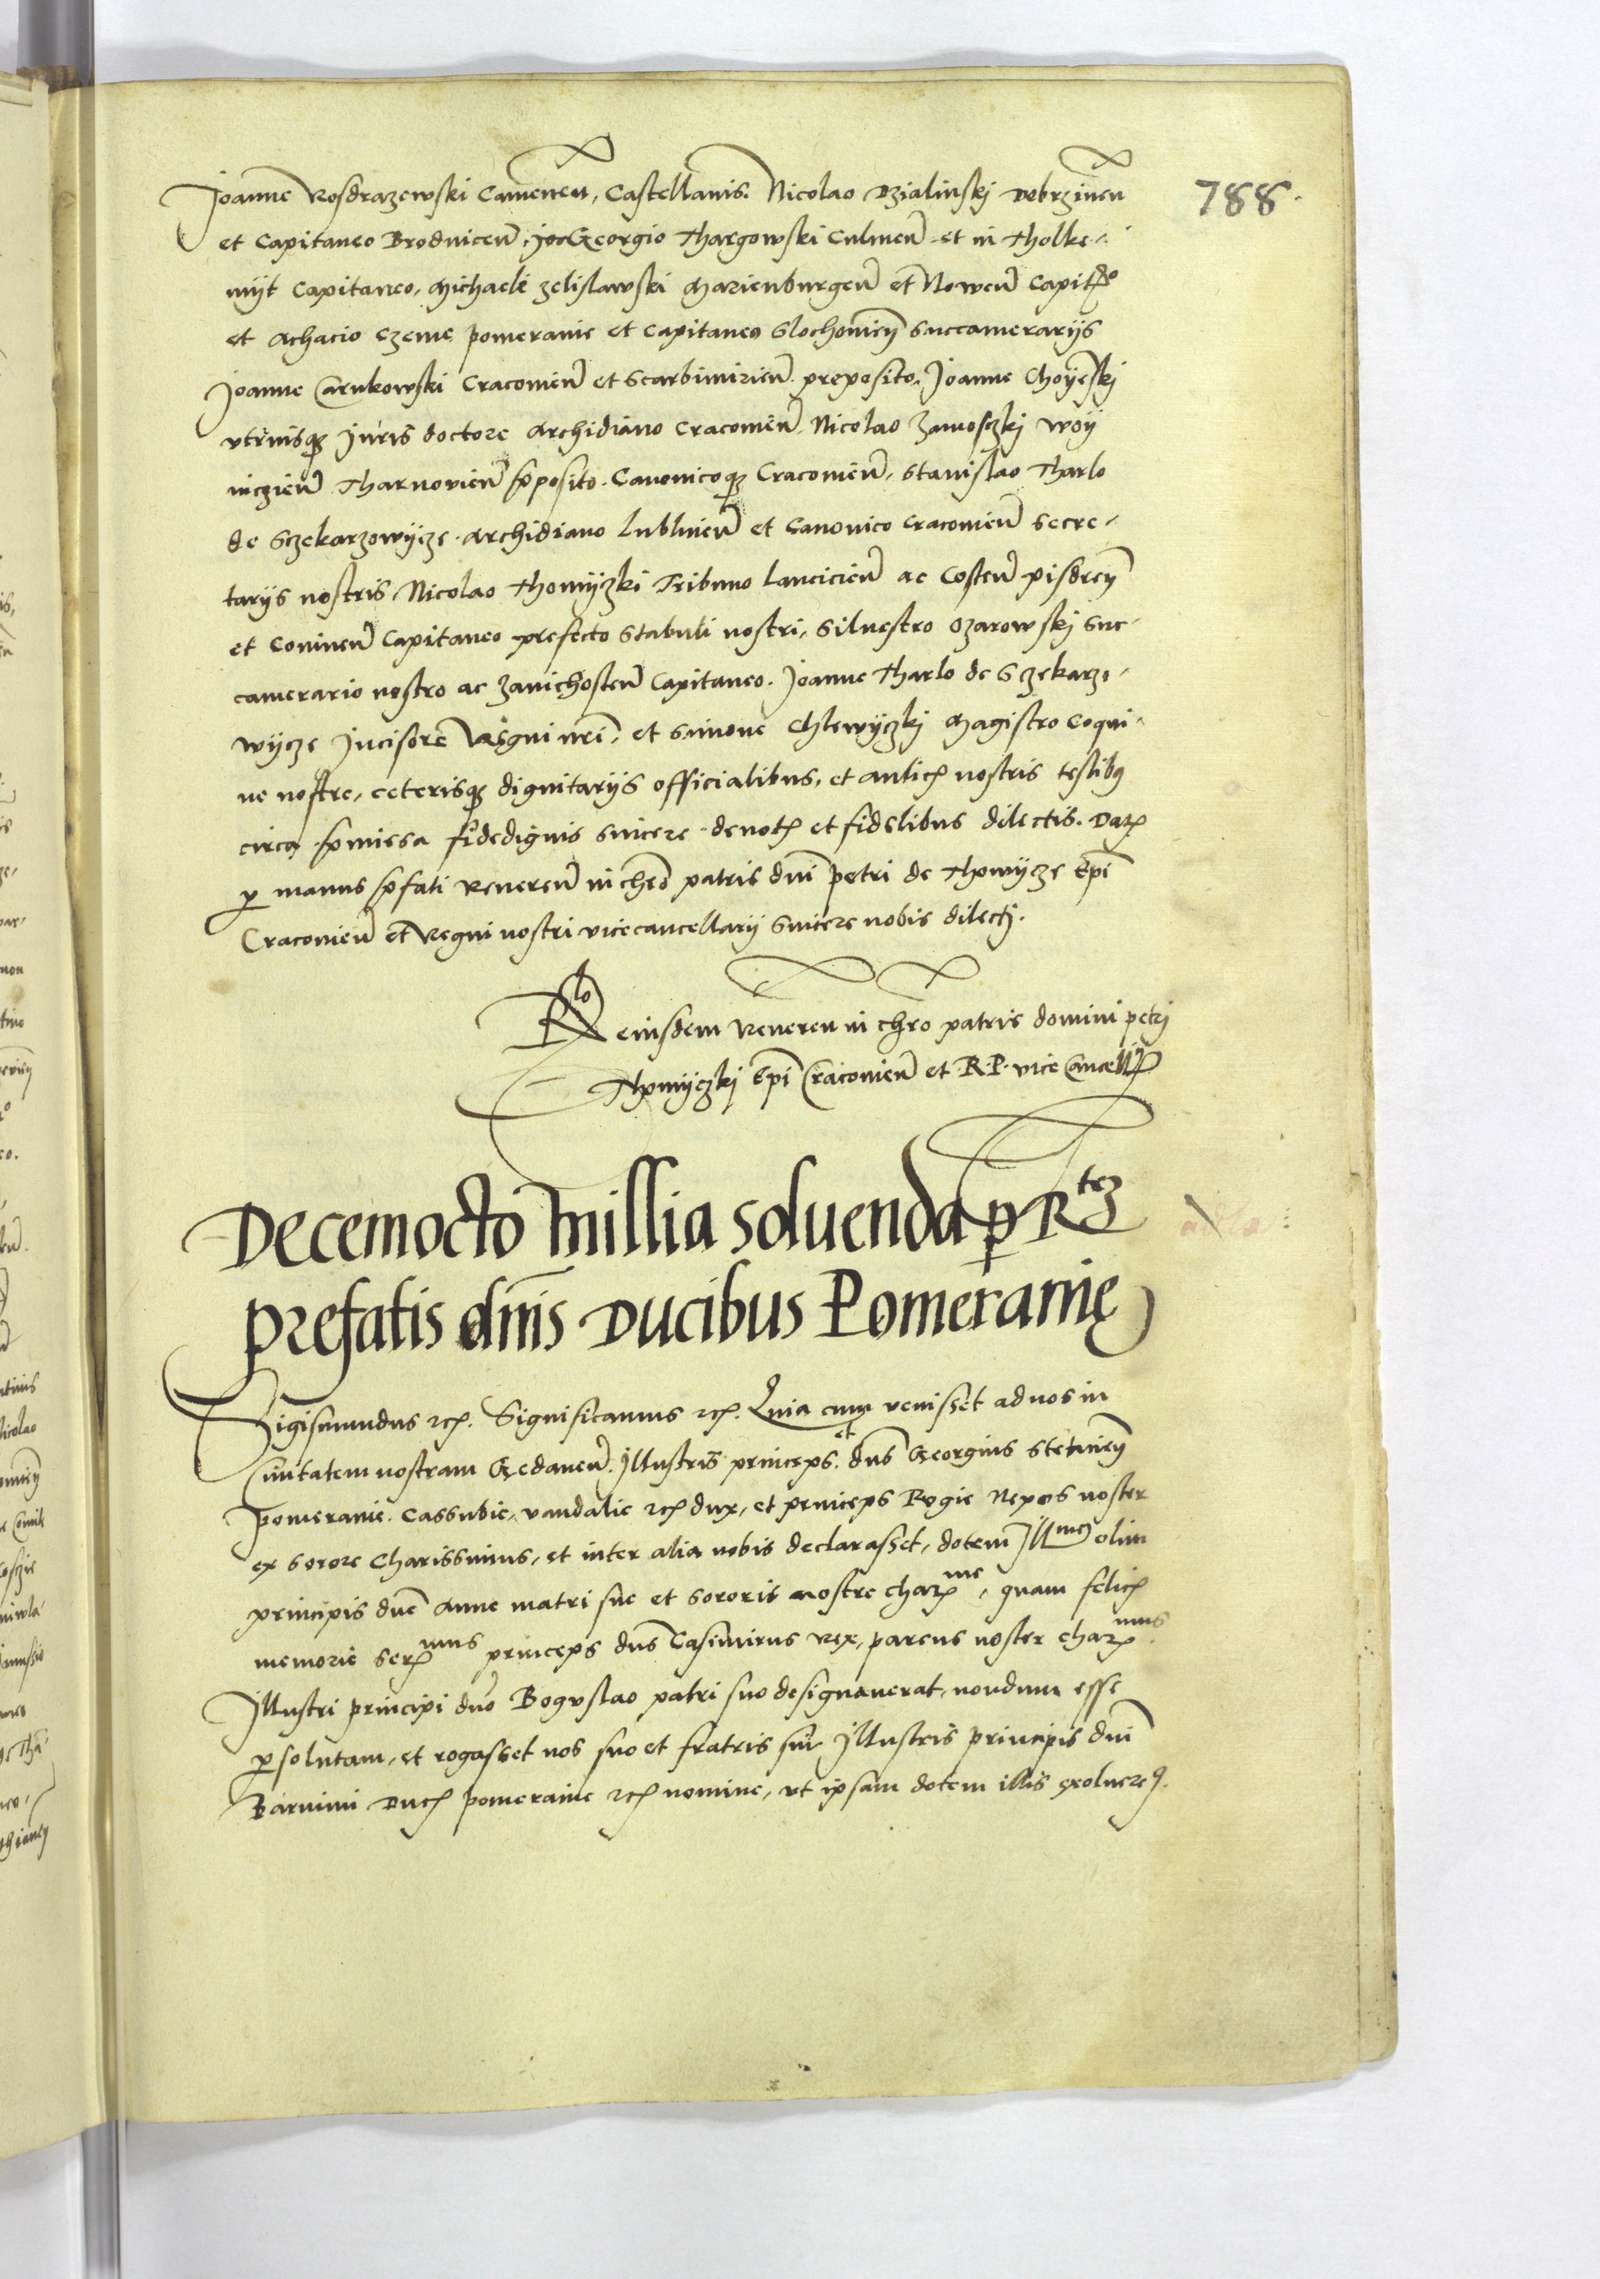 788.
Joanne Rosdrazewski Camenen̄, Castellanis. Nicolao Dzialinskj Dobrzinen̄
et Capitaneo Brodnicen̄, Georgio Thargowski Culmen̄ et in Tholke-
miit Capitaneo, Michaele Zelislawski Marienburgen̄ et Nowen̄ Capit̄o
et Achacio Czeme pomeranie et Capitaneo Slochovien̄ Succamerariis
Joanne Carnkowski Cracovien̄ et Scarbimirien̄ preposito, Joanne Choyeñskj
vtriusq̃ Juris doctore Archidiano Cracovien̄, Nicolao Zamosczkj Woy
niczien̄ Tharnovien̄ p̃posito. Canonicoq̃ Cracovien̄, Stanislao Tharlo
de Sczekarzowijcze Archidiano lublinen̄ et Canonico Cracovien̄ Secre-
tariis nostris, Nicolao Thomijczki Tribuno lancicien̄ ac Costen̄ pisdren̄
et Coninen̄ Capitaneo prefecto Stabuli nostri, Siluestro Ozarowskj Suc-
camerario nostro ac Zavichosten̄ Capitaneo. Joanne Tharlo de Sczekarzo-
wijcze Incisore Regni nr̃i, et Simone Chlewijczkj Magistro Coqui-
ne nostre, ceterisq̃ dignitariis officialibus, et aulicꝭ nostris testibꝰ
circa p̃missa fidedignis sincere deuotꝭ et fidelibus dilectis. Datꝭ
ꝑ manus p̃fati Reueren̄ in chr̃o patris dñi petri de Thomijcze Ep̃i
Cracovien̄ et Regni nostri vicecancellarij Sincere nobis dilectj.
R̃lo eiusdem Reueren̄ in chr̃o patris domini petrj
Thomijczkj Ep̃i Cracovien̄ et R. P. vice Cancellꝭ
Decemocto millia soluenda ꝑ Rtez
prefatis dñis Ducibus Pomeranię
Sigismundus ꝛcꝭ. Significamus ꝛcꝭ. Quia cum venisset ad nos in
Ciuitatem nostram Gedanen̄. Illustris princeps et dñs Georgius Stetinen̄
Pomeranie, Cassubie, vandalie ꝛcꝭ dux, et princeps Rugie Nepos noster
ex Sorore Charissimus, et inter alia nobis declarasset, dotem Illme olim
principis dñe Anne matri sue et sororis nostre charꝭme, quam felicꝭ
memorie Serꝭmus princeps dñs Casimirus Rex, parens noster charꝭmus
Illustri principi dño Boguslao patri suo designauerat, nondum esse
ꝑsolutam, et rogasset nos suo et fratris sui Illustris principis dñi
Barnimi Ducꝭ pomeranie ꝛcꝭ nomine, vt ipsam dotem illis exolueremꝰ.